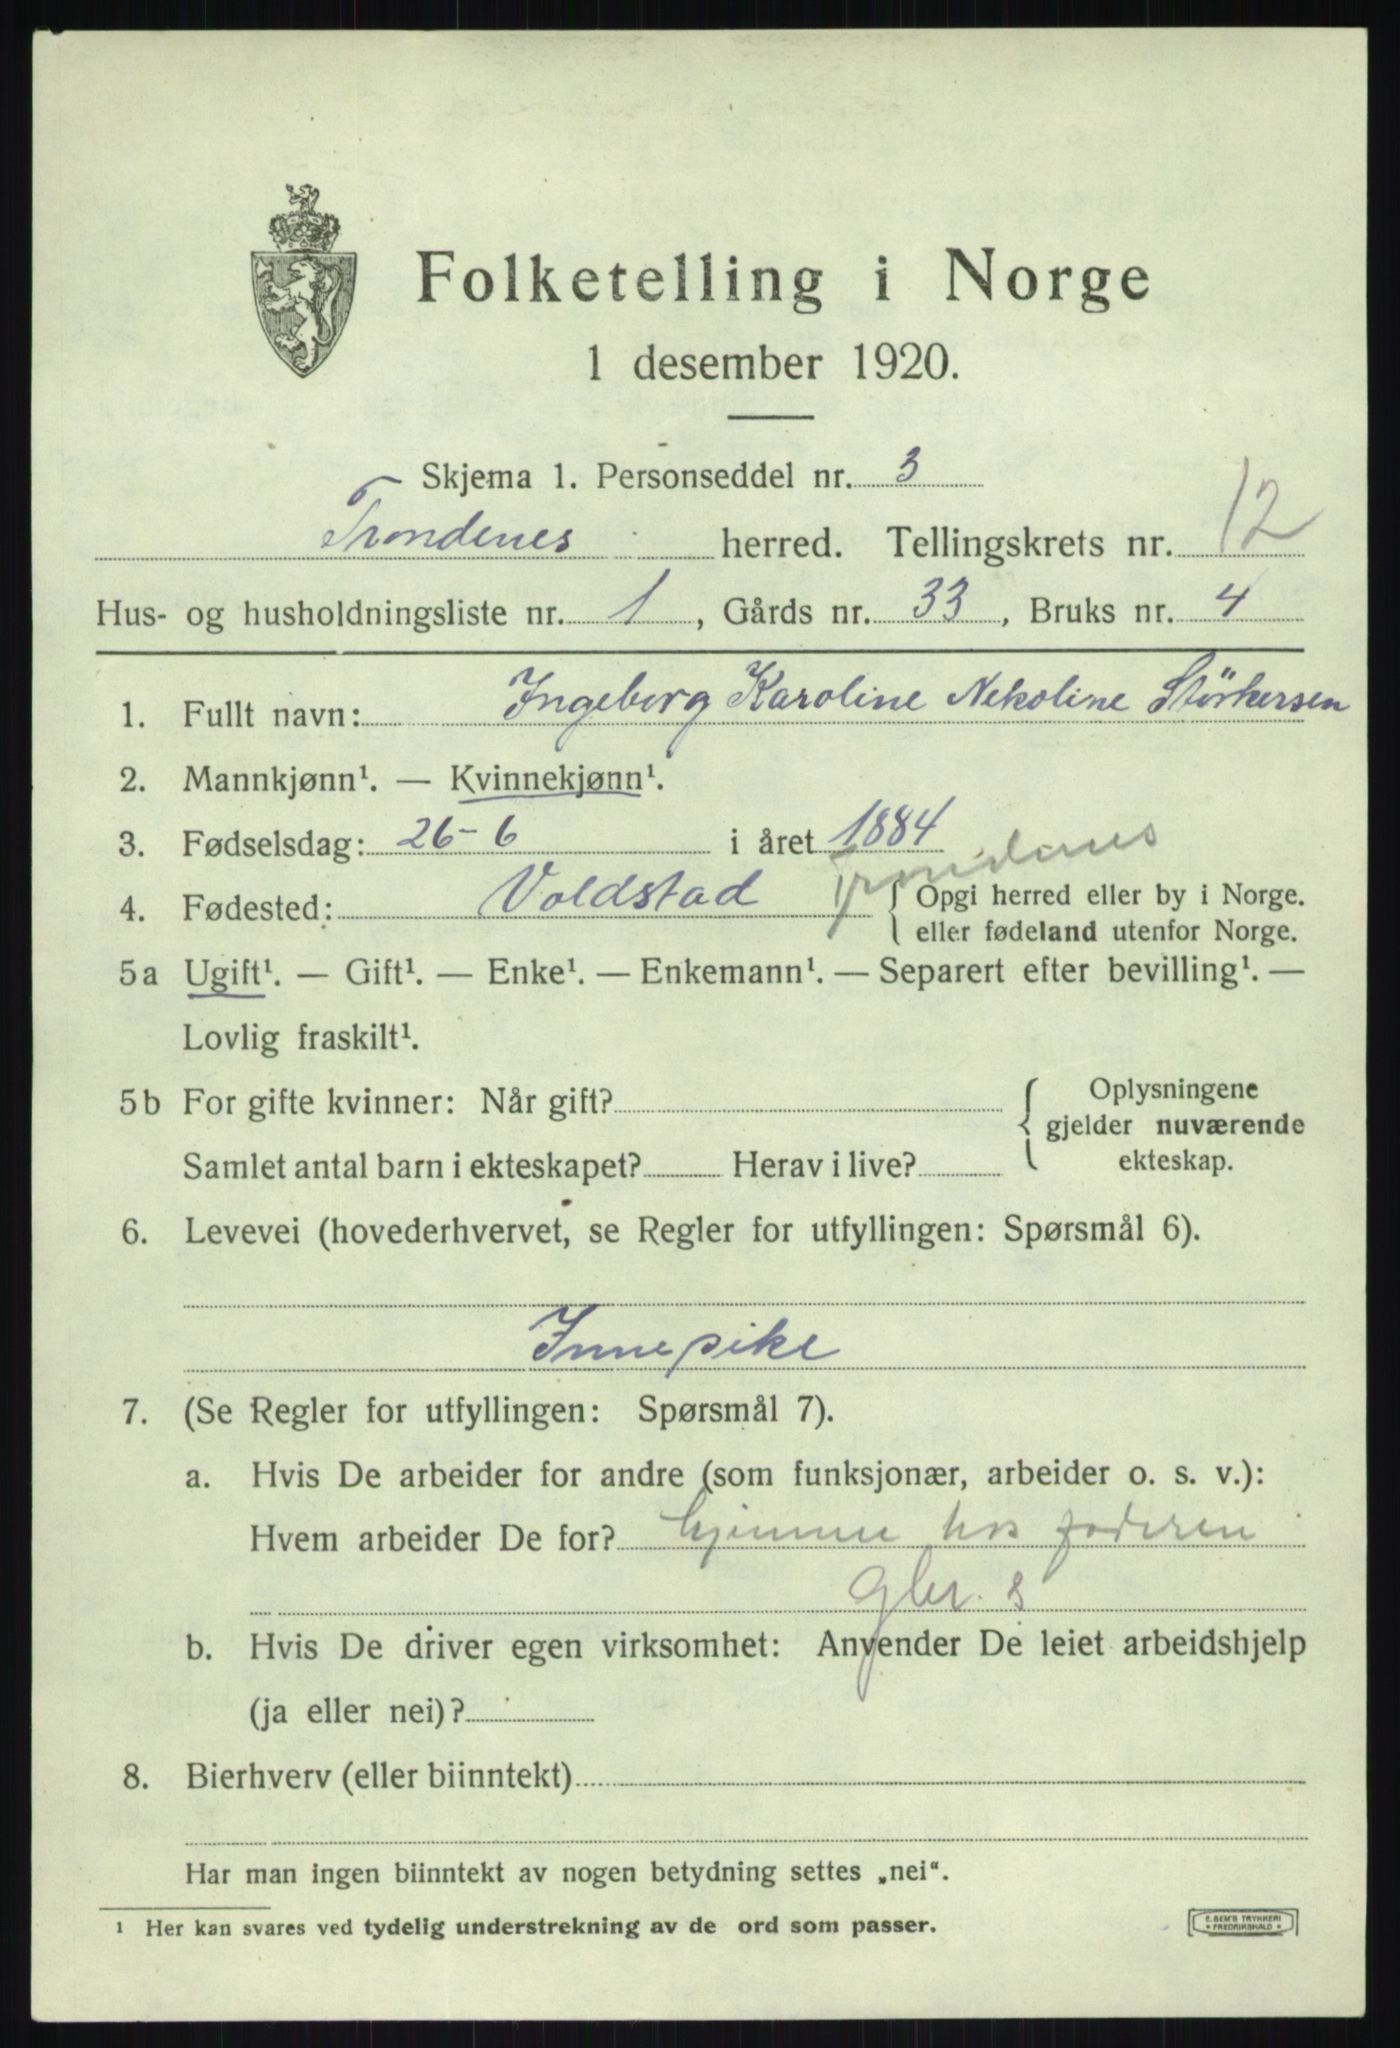 Folketelling i Norge
1 desember 1920.
Skjema 1. Personseddel nr. 3
Trondenes herred. Tellingskrets nr. 12
Hus- og husholdningsliste nr. 1, Gårds nr. 33, Bruks nr. 4
1. Fullt navn: Ingeborg Karoline Nekoline Störkersen
2. Mannkjønn¹. — Kvinnekjønn¹.
3. Fødselsdag: 26-6 i året 1884
4. Fødested: Voldstad Trondenes { Opgi herred eller by i Norge.
eller fødeland utenfor Norge.
5a Ugift¹. — Gift¹. — Enke¹. — Enkemann¹. — Separert efter bevilling¹. —
Lovlig fraskilt¹.
5b For gifte kvinner: Når gift? { Oplysningene
gjelder nuværende
Samlet antal barn i ekteskapet? Herav i live? ekteskap.
6. Levevei (hovederhvervet, se Regler for utfyllingen: Spørsmål 6).
Innepike
7. (Se Regler for utfyllingen: Spørsmål 7).
a. Hvis De arbeider for andre (som funksjonær, arbeider o. s. v.):
Hvem arbeider De for? hjemme hos faderen
gbr. s
b. Hvis De driver egen virksomhet: Anvender De leiet arbeidshjelp
(ja eller nei)?
8. Bierhverv (eller biinntekt)
Har man ingen biinntekt av nogen betydning settes „nei“.
¹ Her kan svares ved tydelig understrekning av de ord som passer.
E. SEM'S TRYKKERI
* FREDRIKSHALD *